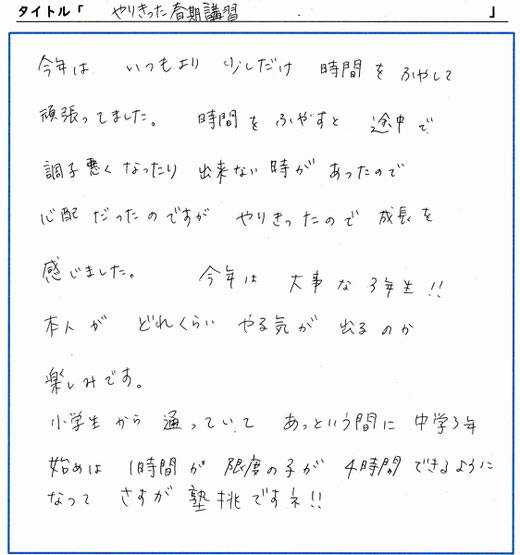 タイトル「 やりきった春期講習 」
今年は いつもより 少しだけ 時間を ふやして
頑張ってました。 時間を ふやすと 途中で
調子悪くなったり 出来ない時が あったので
心配だったのですが やりきったので 成長を
感じました。 今年は 大事な 3年生!!
本人が どれくらい やる気が 出るのか
楽しみです。
小学生から 通っていて あっという間に 中学3年
始めは 1時間が 限度の子が 4時間できるように
なって さすが 塾挑ですネ!!